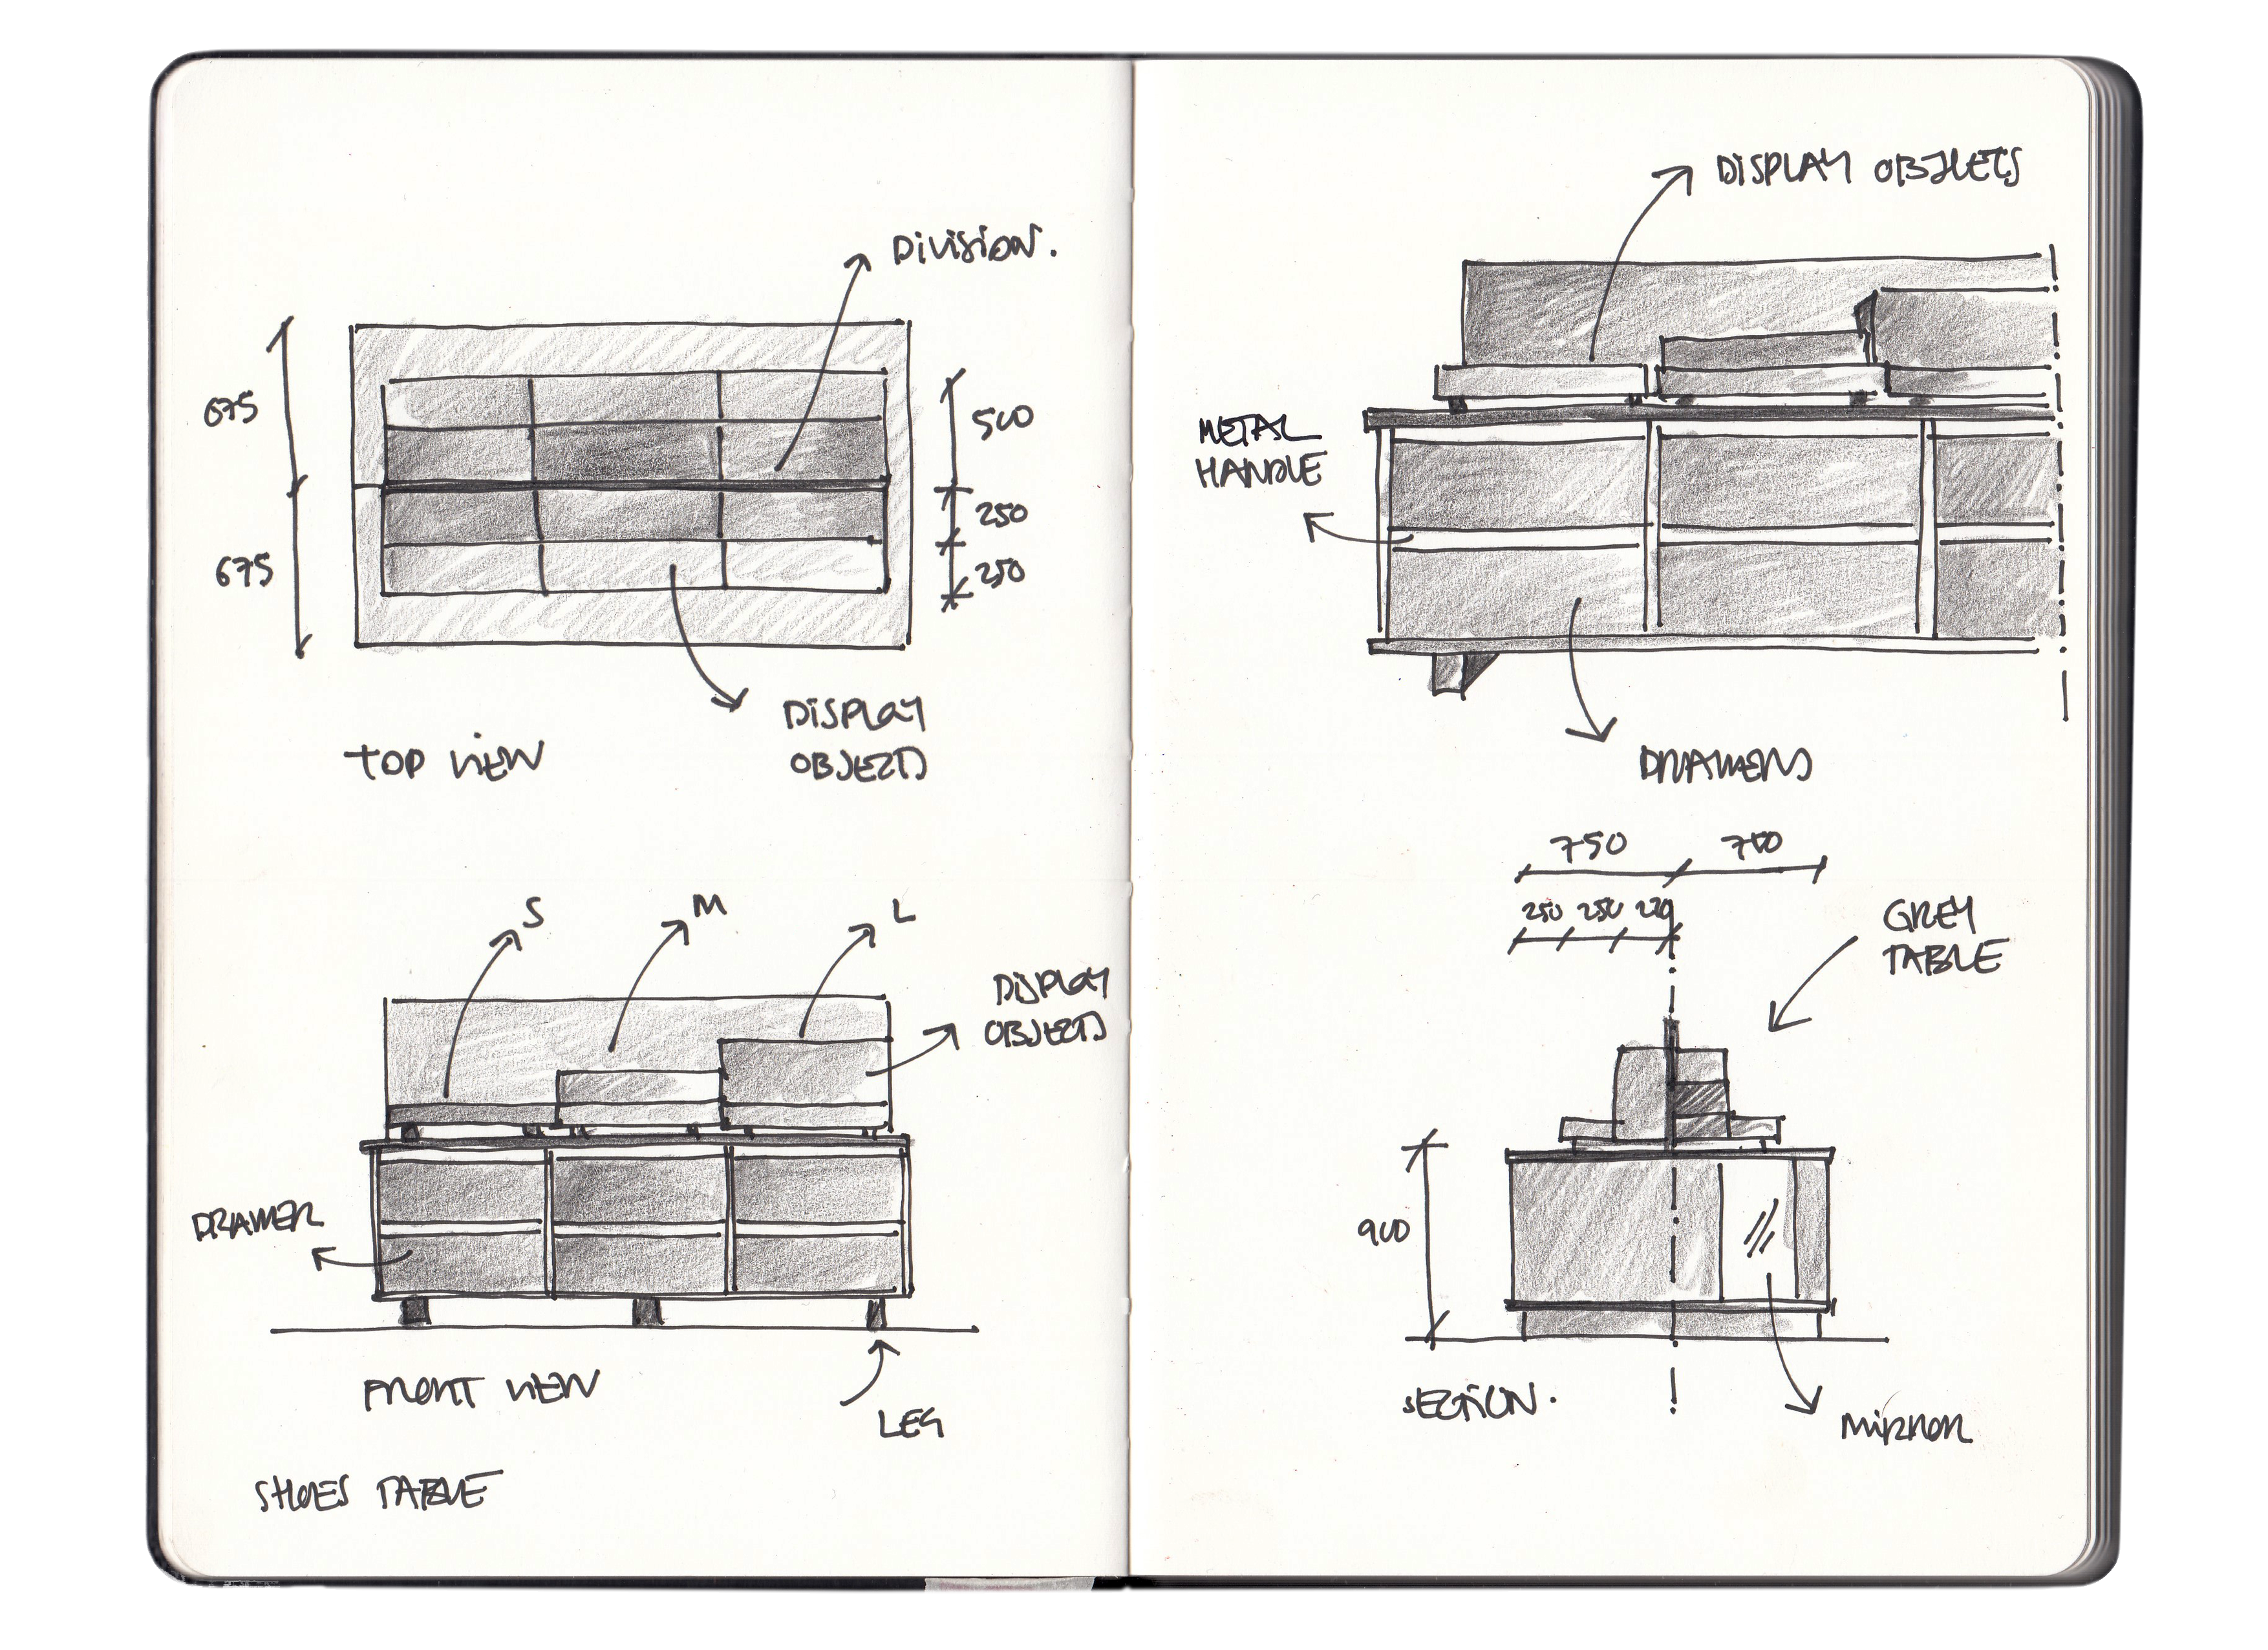 DIVISION.
675
500
250
675
250
DISPLAY
OBJECTS
TOP VIEW
S
M
L
DISPLAY
OBJECTS
DRAWER
FRONT VIEW
LEG
SHOES TABLE
DISPLAY OBJECTS
METAL
HANDLE
DRAWERS
750
750
250 250
GREY
TABLE
900
SECTION.
MIRROR